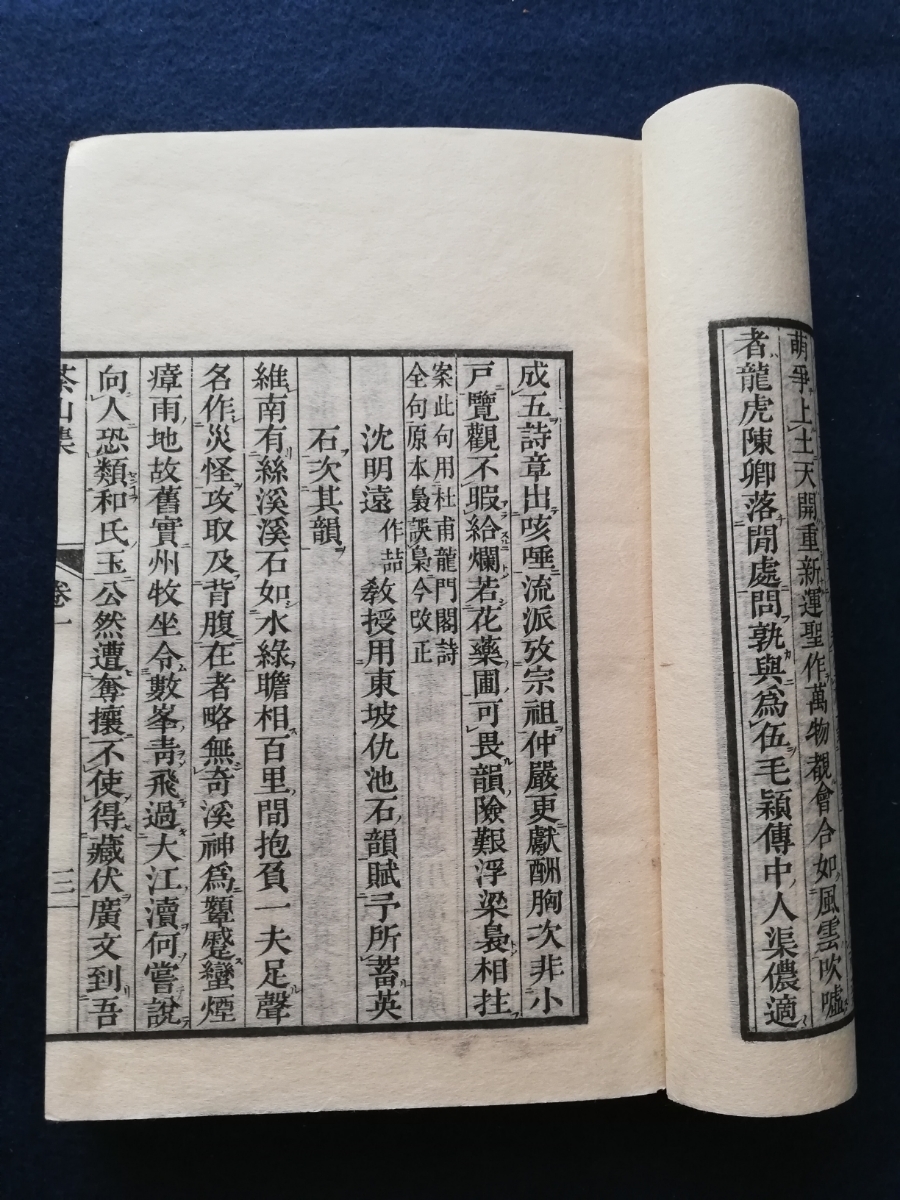 萌爭上土天開重新運聖作萬物覩會合如風雲吹噓
者龍虎陳卿落閒處問孰與爲伍毛穎傳中人渠儂適
成五詩章出咳唾流派攷宗祖仲嚴更獻酬胸次非小
戸覽觀不暇給爛若花藥圃可畏韻險艱浮梁裊相拄
案此句用杜甫龍門閣詩
全句原本裊誤梟今改正
沈明遠作喆教授用東坡仇池石韻賦予所蓄英
石次其韻
維南有絲溪溪石如水綠瞻相百里間抱負一夫足聲
名作災怪攻取及背腹在者略無奇溪神爲顰蹙蠻煙
瘴雨地故舊實州牧坐令數峯靑飛過大江瀆何嘗說
向人恐類和氏玉公然遭奪攘不使得藏伏廣文到吾
茶山集 卷一 三